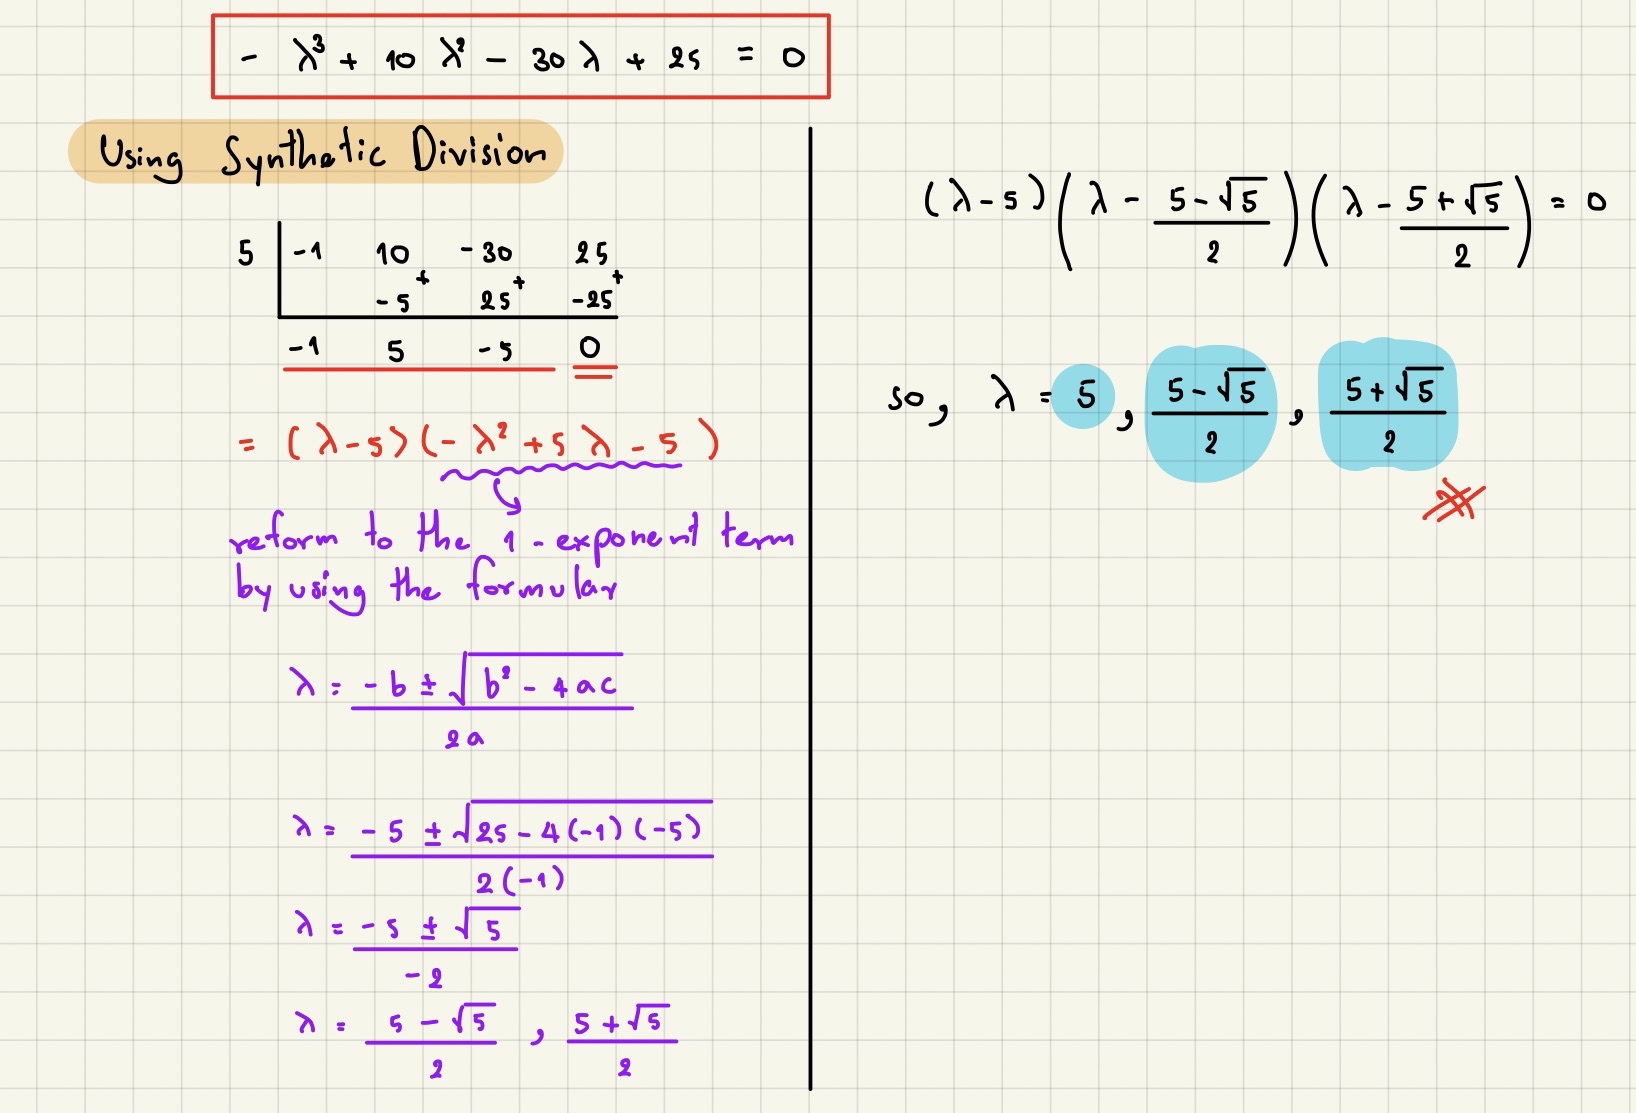 - λ³ + 10 λ² - 30 λ + 25 = 0
Using Synthetic Division
5 | -1 10 -30 25
-5 + 25 + -25 +
-1 5 -5 0
= (λ-5)(-λ² + 5 λ - 5)
reform to the 1-exponent term
by using the formular
λ = -b ± √(b² - 4ac)
2a
λ = -5 ± √(25 - 4(-1)(-5))
2(-1)
λ = -5 ± √5
-2
λ = 5 - √5 , 5 + √5
2 2
(λ-5)(λ - (5-√5)/2)(λ - (5+√5)/2) = 0
so, λ = 5, (5-√5)/2, (5+√5)/2